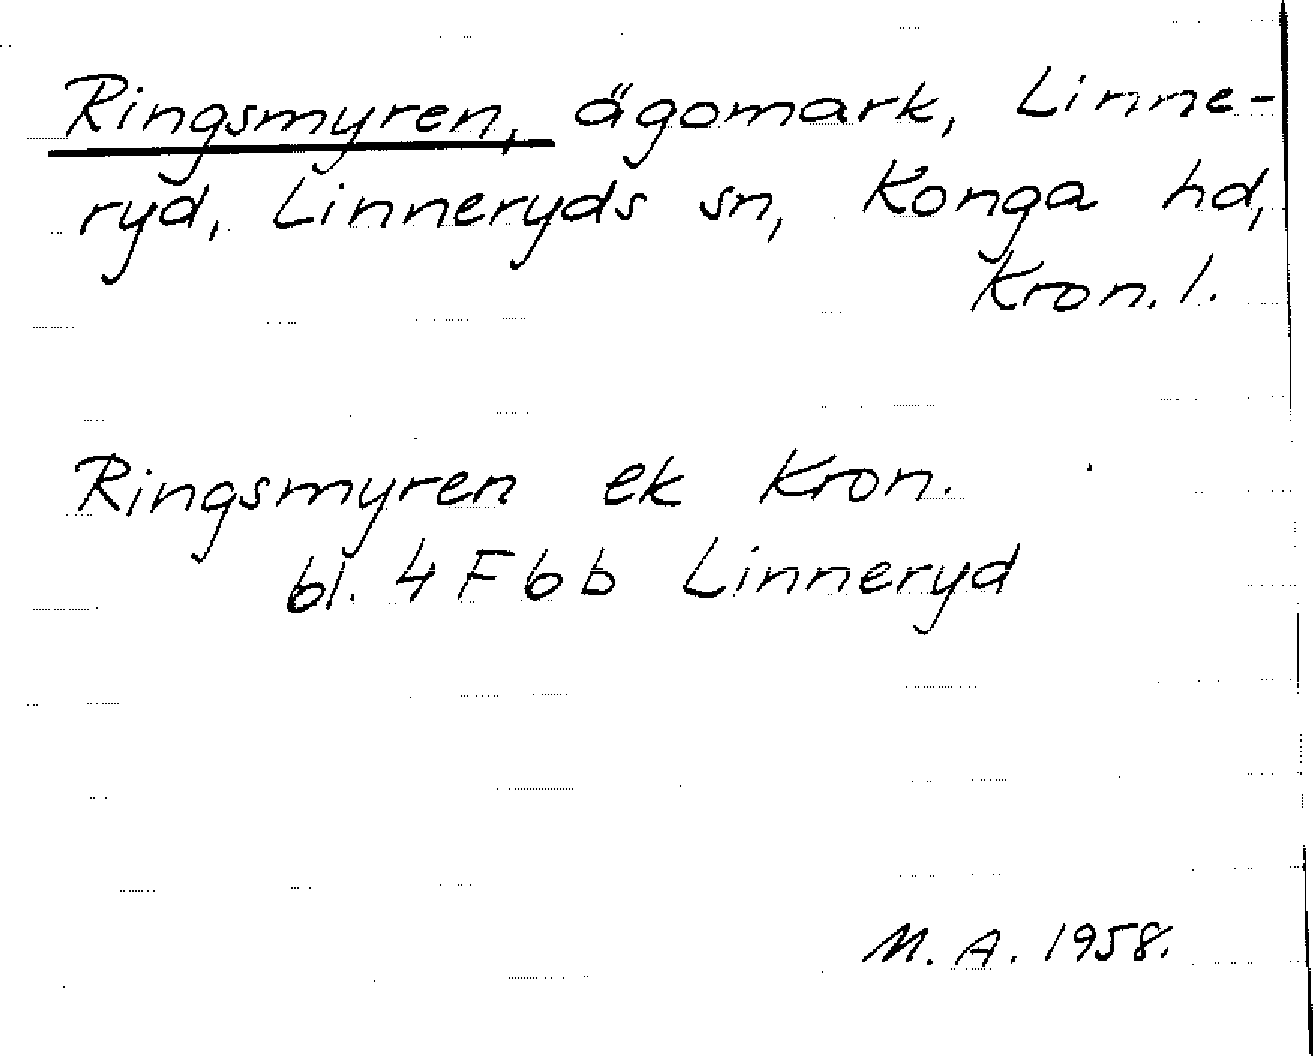 Ringsmyren, ägomark, Linne-
ryd, Linneryds sn, Konga hd,
Kron. l.
Ringsmyren ek Kron.
bl. 4 F 6 b Linneryd
M. A. 1958.